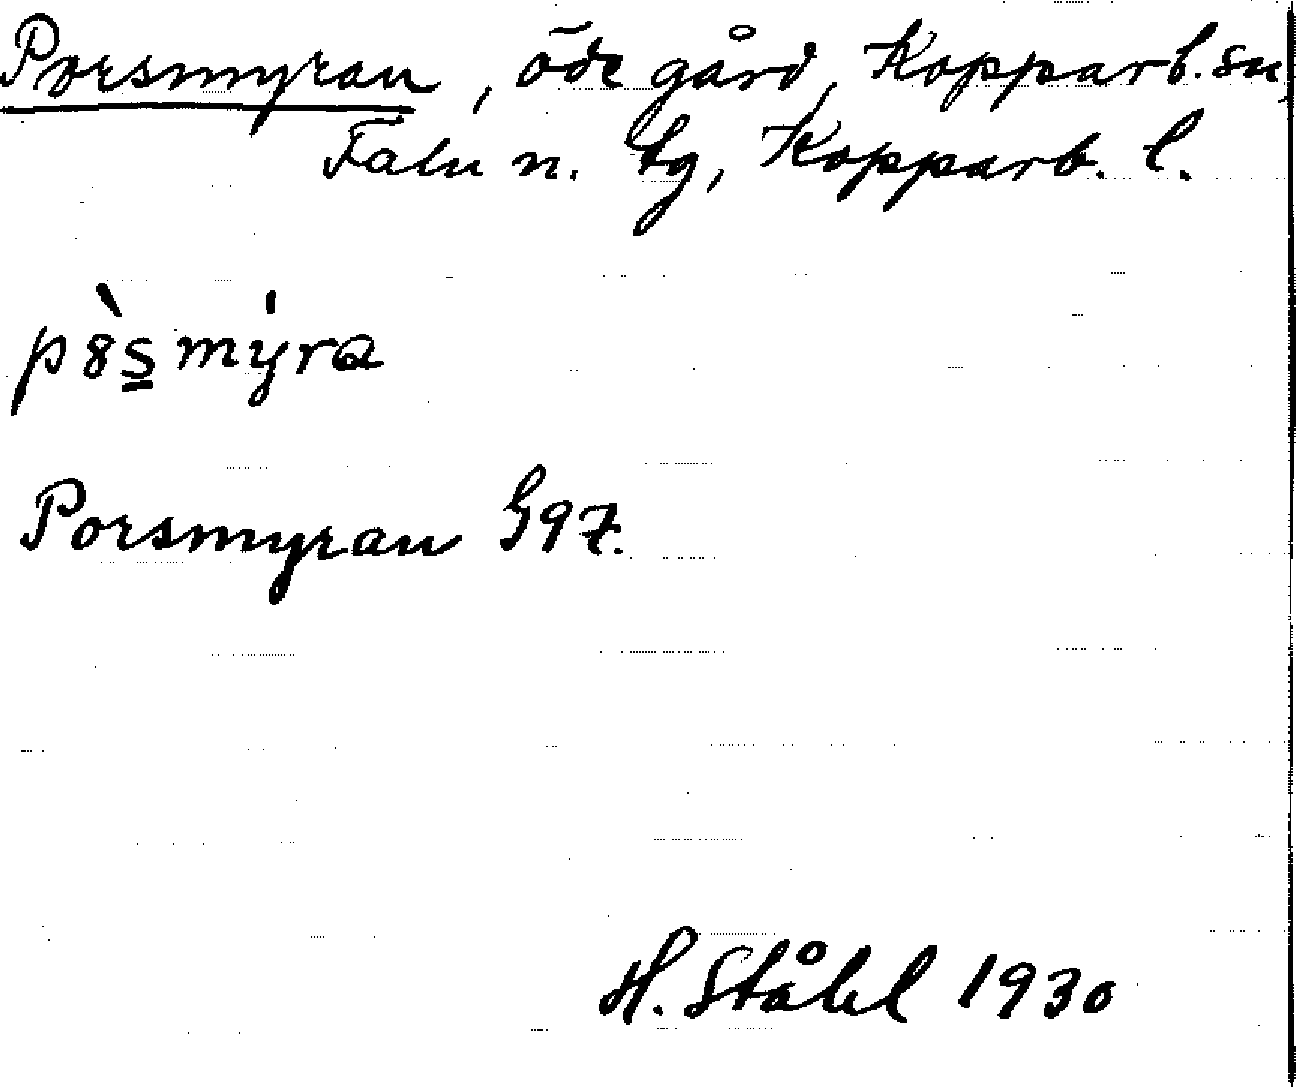 Porsmyran, öde gård, Kopparb. sn,
Falu n. tg, Kopparb. l.
pò̀s̲mýra
Porsmyran G97.
H. Ståhl 1930